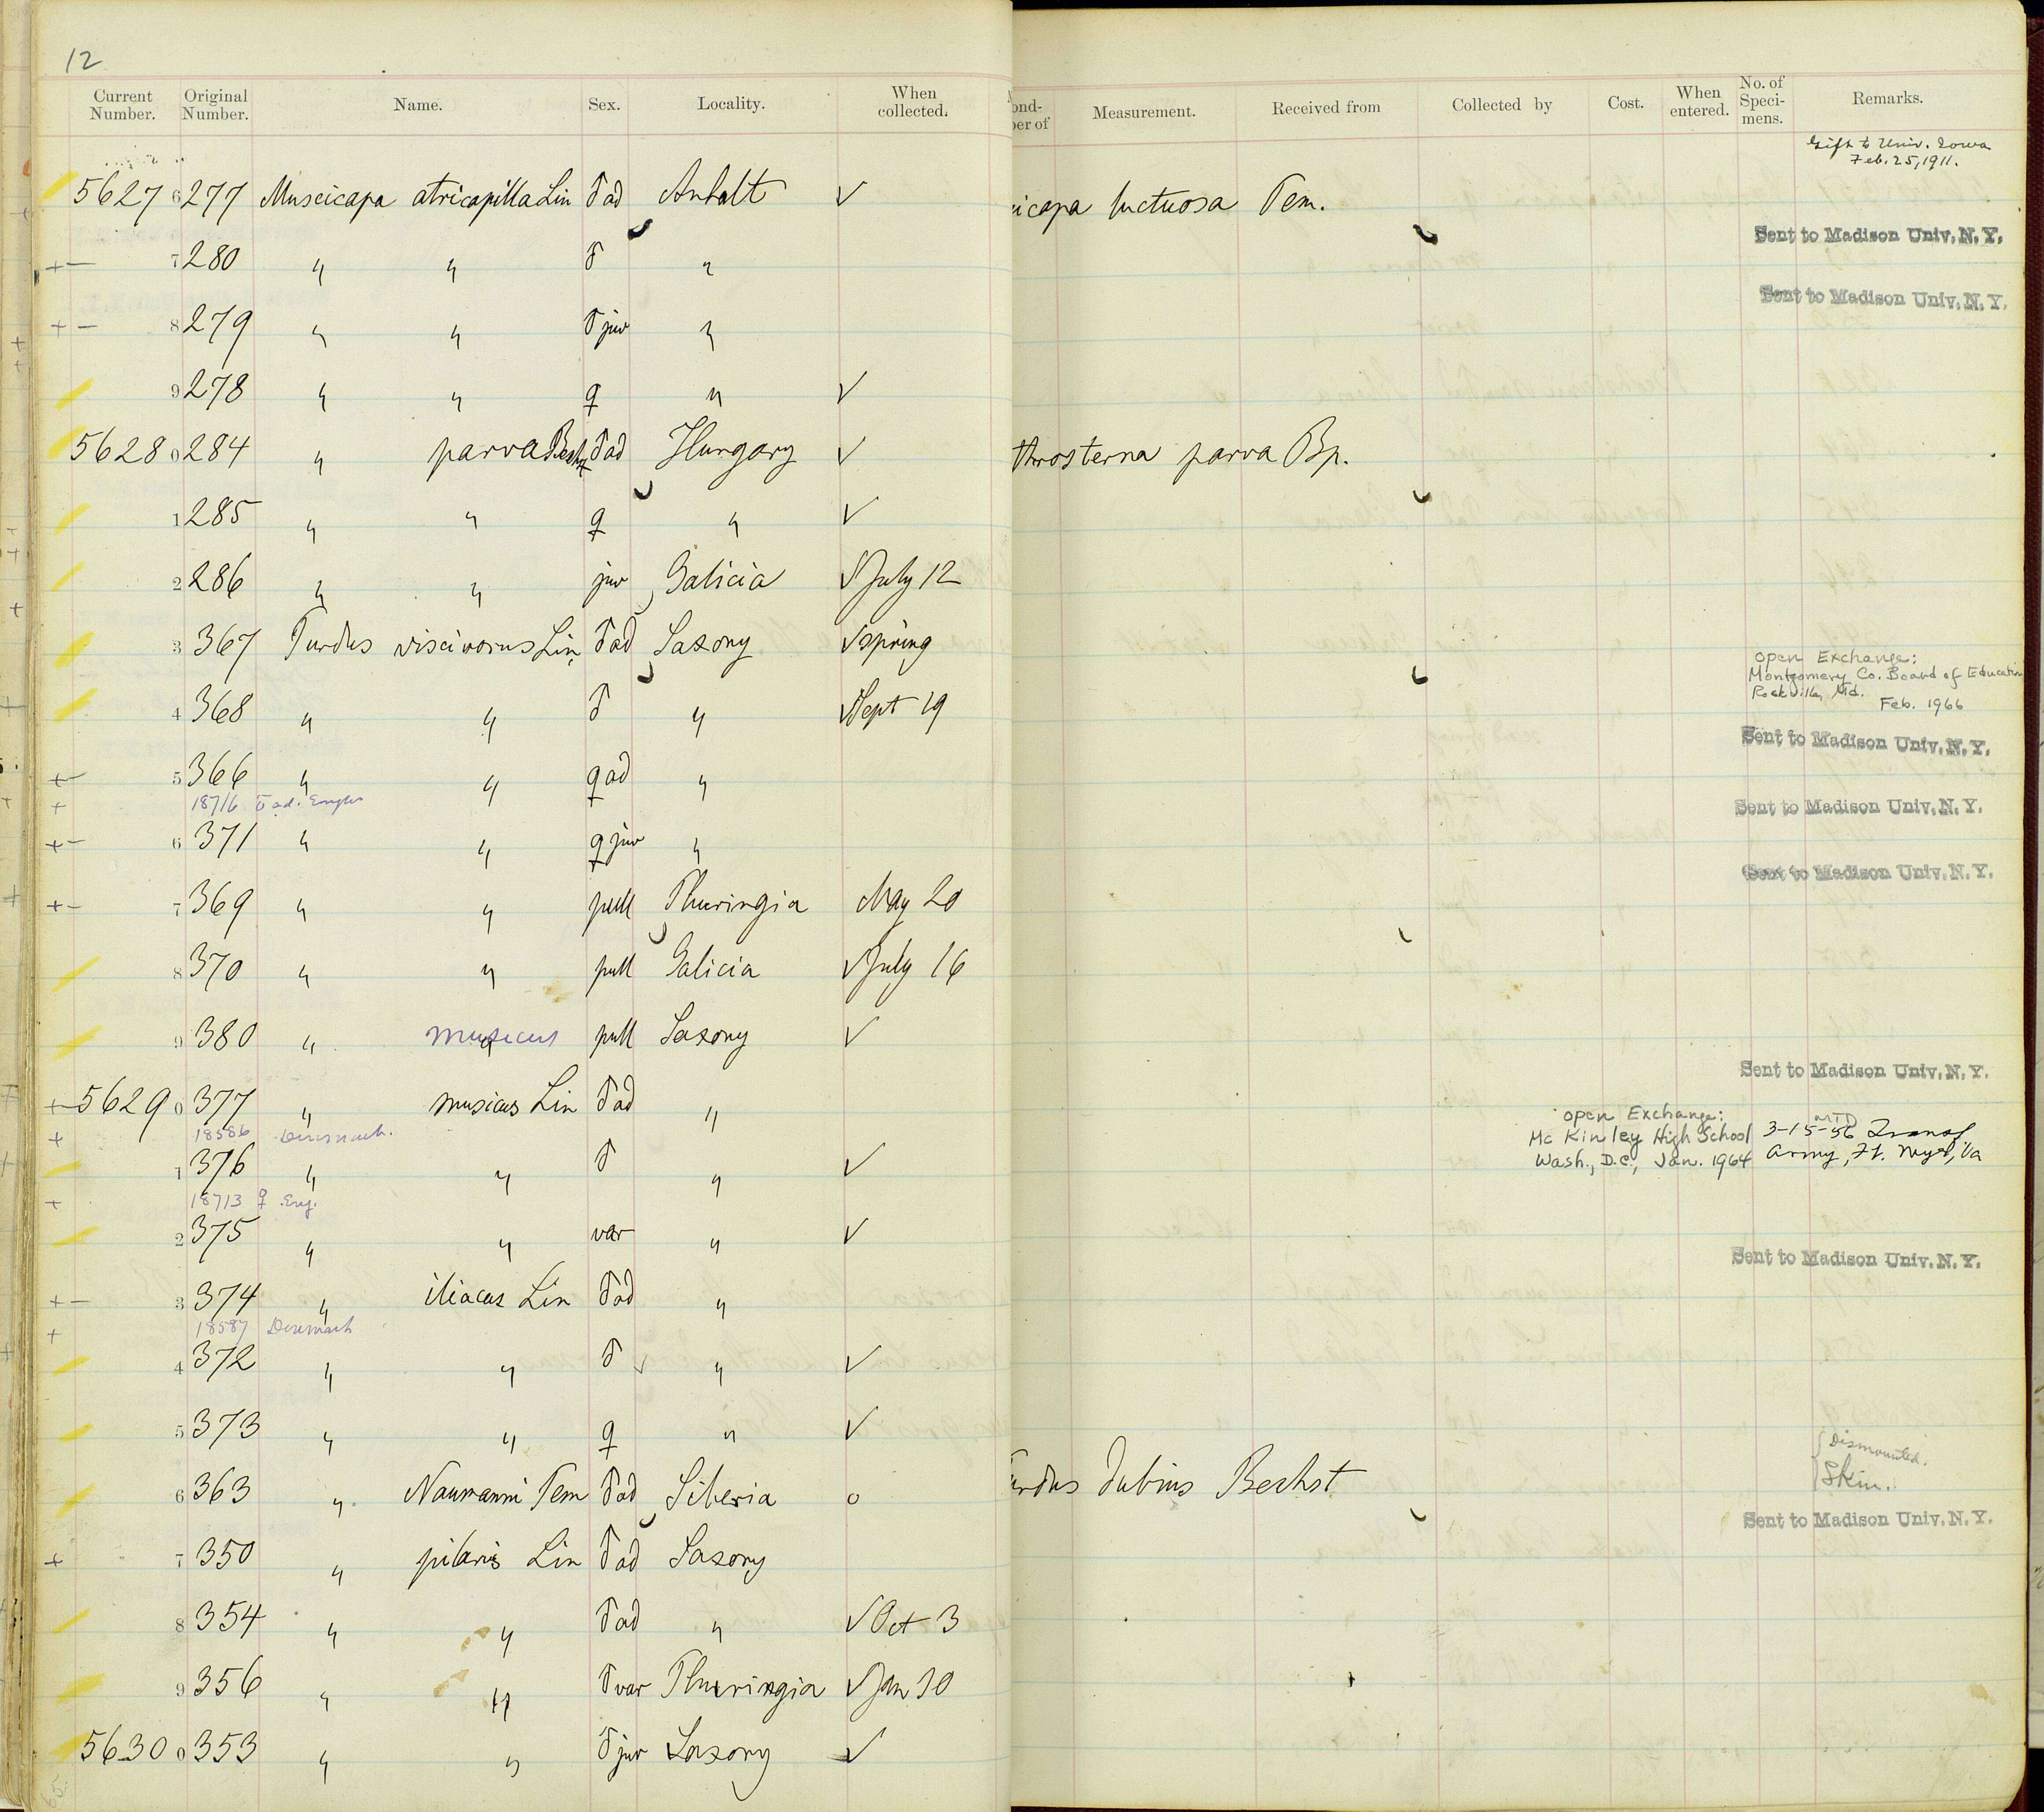 12
Current Number. Original Number. Name. Sex. Locality. When collected. Measurement. Received from Collected by Cost. When entered. No. of Speci-mens. Remarks.
Gift to Univ. Iowa
Feb. 25, 1911.
5627 6 277 Muscicapa atricapilla Lin ♂ ad Anhalt ✓ icapa luctuosa Tem.
Sent to Madison Univ. N. Y.
+— 7 280 " " ♂ "
Sent to Madison Univ. N. Y.
+— 8 279 " " ♂ juv "
9 278 " " ♀ " ✓
5628 0 284 " parva Bechst ♂ ad Hungary ✓ throsterna parva Bp.
1 285 " " ♀ " ✓
2 286 " " juv Galicia ✓ July 12
3 367 Turdus viscivorus Lin, ♂ ad Saxony ✓ spring
Open Exchange:
Montgomery Co. Board of Education
Rockville, Md.
Feb. 1966
4 368 " " ♂ " ✓ Sept 19
Sent to Madison Univ. N. Y.
+— 5 366 " " ♀ ad "
+ 18716 ♂ ad.
Sent to Madison Univ. N. Y.
+— 6 371 " " ♀ juv "
Sent to Madison Univ. N. Y.
+— 7 369 " " pull Thuringia May 20
8 370 " " pull Galicia ✓ July 16
9 380 " musicus " pull Saxony ✓
Sent to Madison Univ. N. Y.
+— 5629 0 377 " musicus Lin ♂ ad "
+ 18586 Denmark.
Open Exchange:
Mc Kinley High School
Wash., D.C., Jan. 1964
MTD
3-15-56 Transf
Army, Ft. Myer, Va
1 376 " " ♂ " ✓
+ 18713 ♀ Eng.
2 375 " " var " ✓
Sent to Madison Univ. N. Y.
+— 3 374 " iliacus Lin ♂ ad "
+ 18587 Denmark
4 372 " " ♂ ✓ " ✓
5 373 " " ♀ " ✓
Dismounted.
Skin.
6 363 " Naumanni Tem ♂ ad Siberia o urdus dubius Bechst
Sent to Madison Univ. N. Y.
+ 7 350 " pilaris Lin ♂ ad Saxony
8 354 " " ♂ ad " ✓ Oct 3
9 356 " " ♂ var Thuringia ✓ Jan 10
5630 0 353 " " ♂ juv Saxony ✓